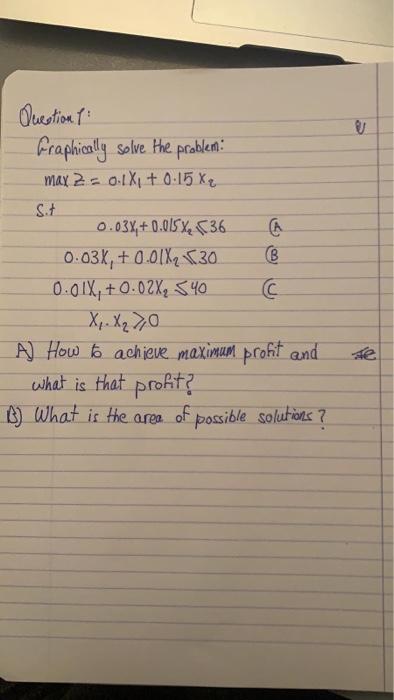 Question 1:
Graphically solve the problem:
max Z = 0.1X₁ + 0.15 X₂
S.t
0.03X₁ + 0.015X₂ ≤ 36 (A
0.03X₁ + 0.01X₂ ≤ 30 (B
0.01X₁ + 0.02X₂ ≤ 40 (C
X₁. X₂ ≥ 0
A) How to achieve maximum profit and
what is that profit?
B) What is the area of possible solutions?